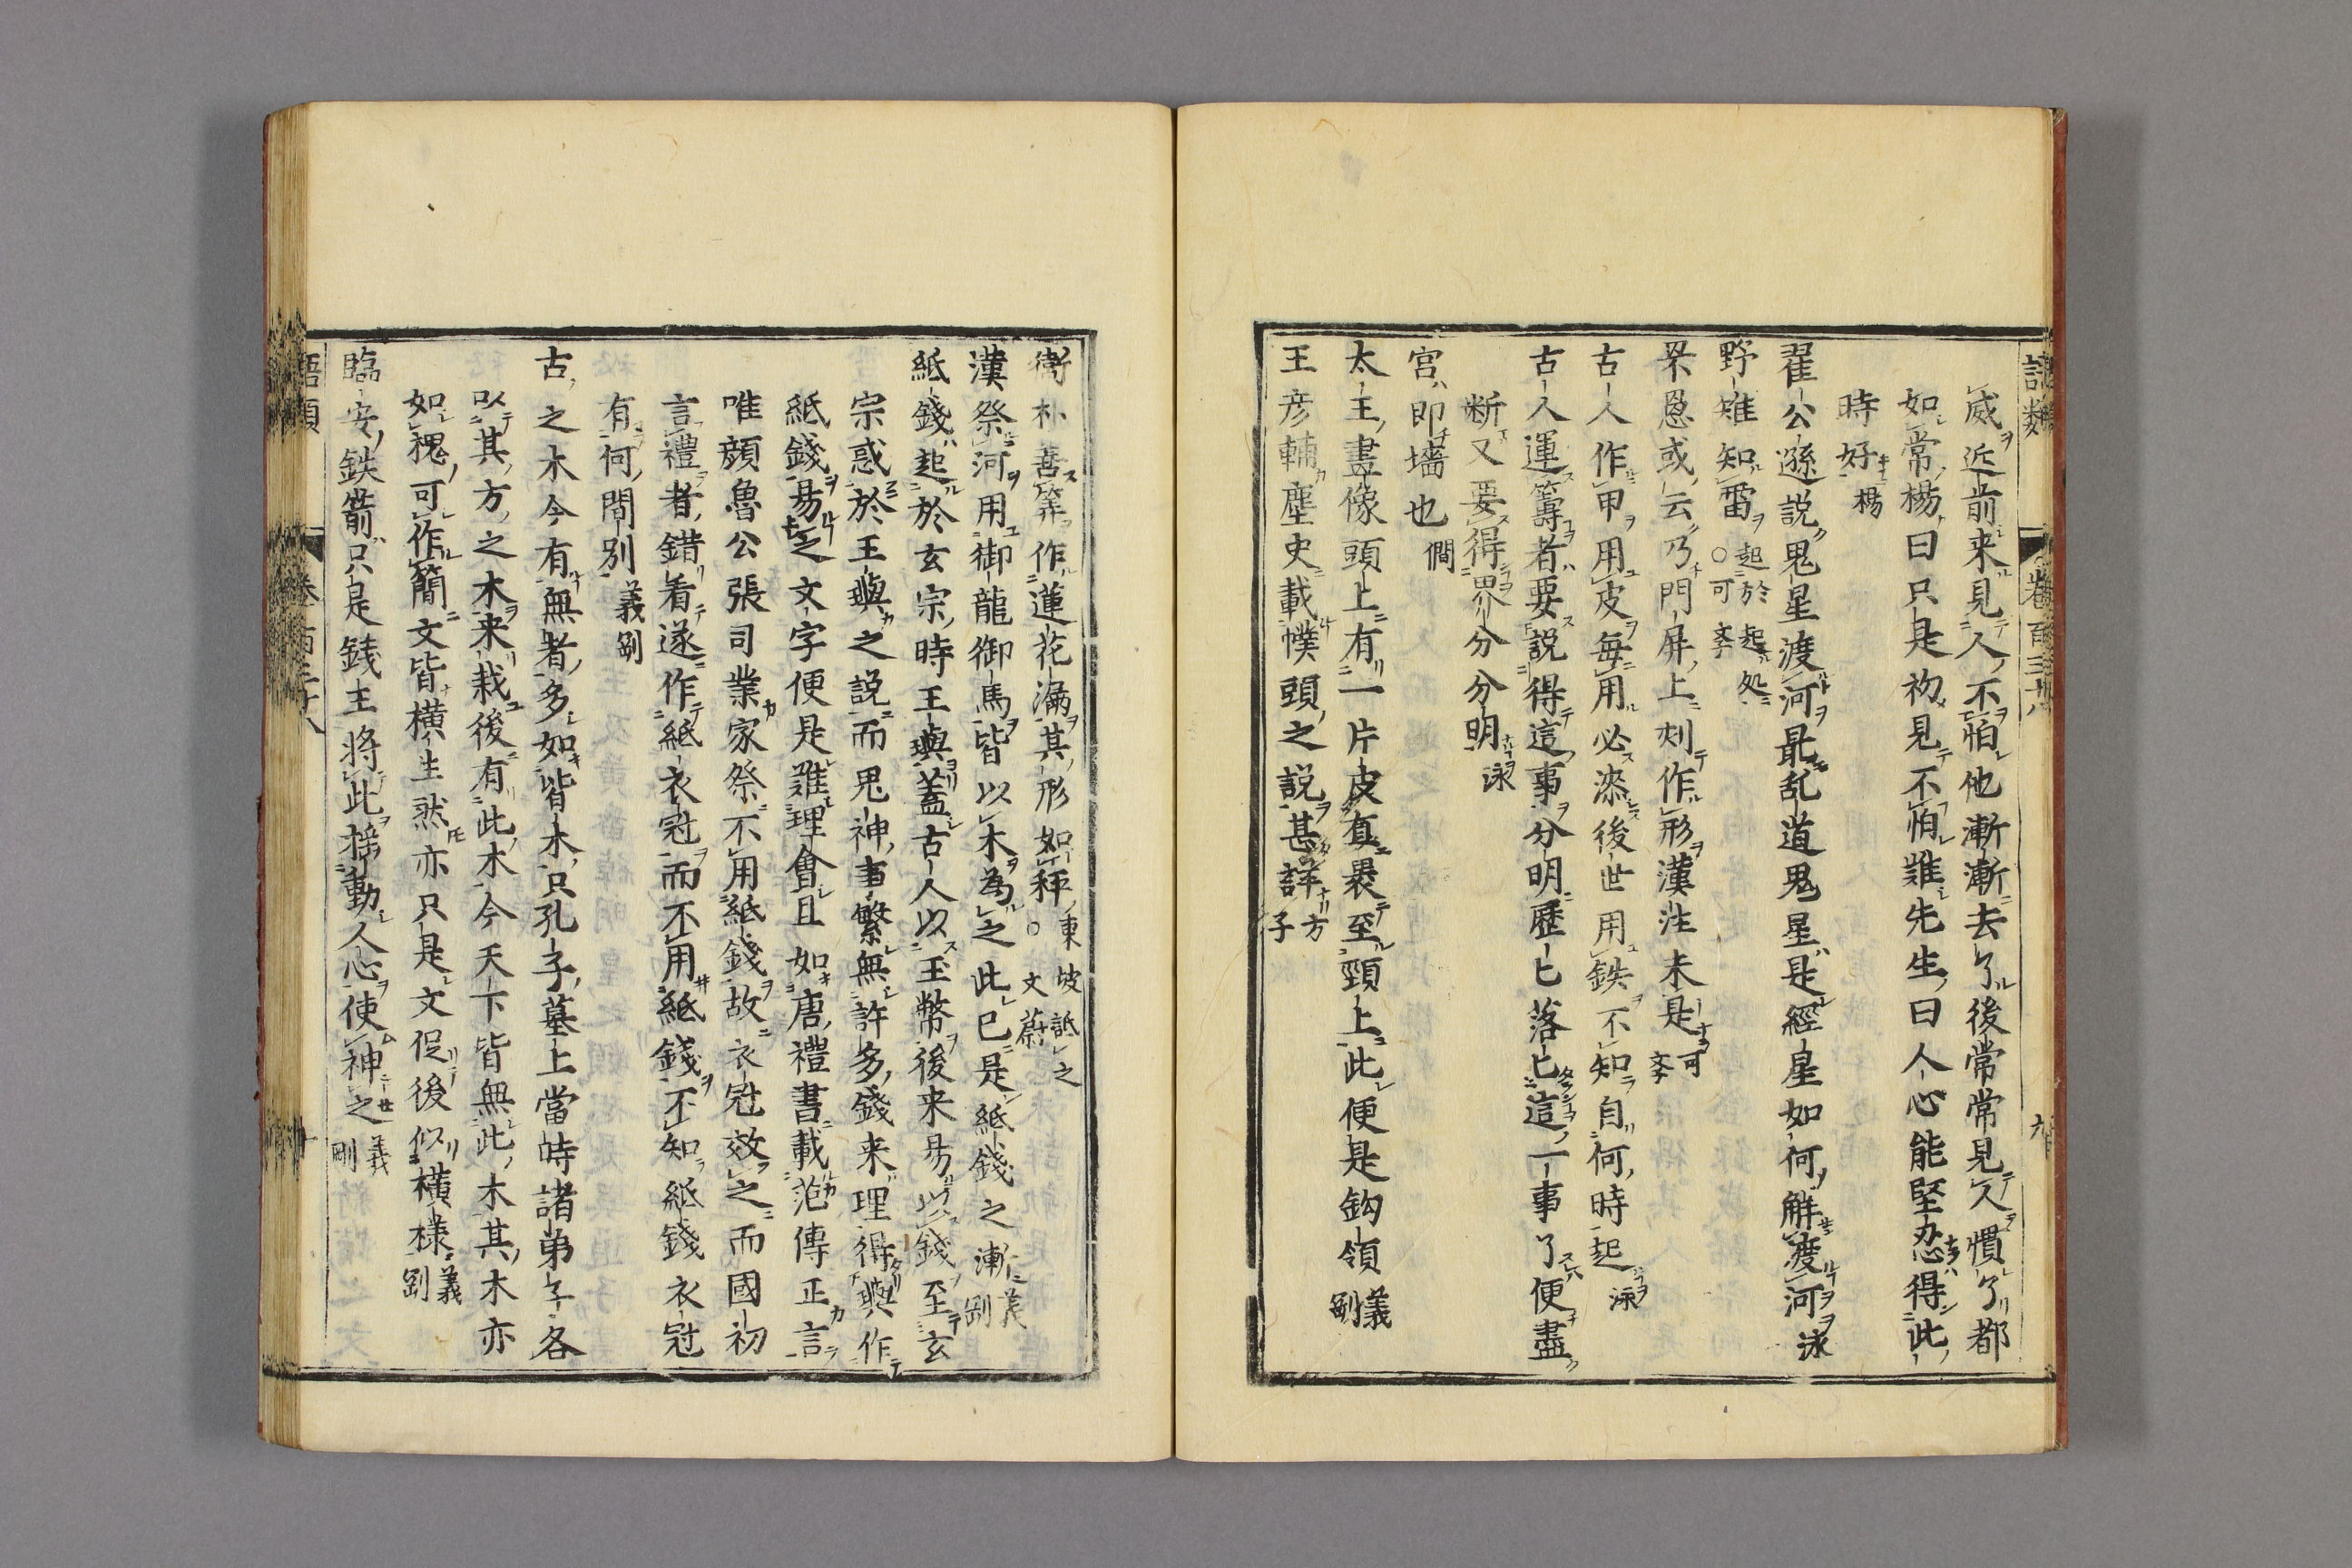 語類 卷百三十八 六
威近前来見人不怕他漸漸去了後常常見人慣了都
如常楊曰只是初見不怕難先生曰人心能堅忍得此
時好楊
翟公遜説鬼星渡河最乱道鬼星是經星如何解渡河泳
野雉知雷起於起処○可李
罘罳或云乃門屏上刻作形漢注未是可李
古人作甲用皮毎用必漆後世用鉄不知自何時起泳
古人運籌者要説得這事分明歴匕落匕這一事了便盡
断又要得界分分明泳
宮即墻也僩
太王畫像頭上有一片皮直褁至頸上此便是鈎領義剛
王彦輔麈史載幞頭之説甚詳方子
衛朴善筭作蓮花漏其形如秤東坡詆之○文蔚
漢祭河用御龍御馬皆以木為之此已是紙錢之漸義剛
紙錢起於玄宗時王璵蓋古人以玉幣後来易以錢至玄
宗惑於王璵之説而鬼神事繁無許多錢来埋得璵作
紙錢易之文字便是難理會且如唐禮書載范傳正言
唯顔魯公張司業家祭不用紙錢故衣冠效之而國初
言禮者錯看遂作紙衣冠而不用紙錢不知紙錢衣冠
有何間別義剛
古之木今有無者多如皆木只孔子墓上當時諸弟子各
以其方之木来栽後有此木今天下皆無此木其木亦
如槐可作簡文皆横生然亦只是文促後似横様義剛
臨安鉄箭只是錢王將此揺動人心使神之義剛
語類 卷百三十八